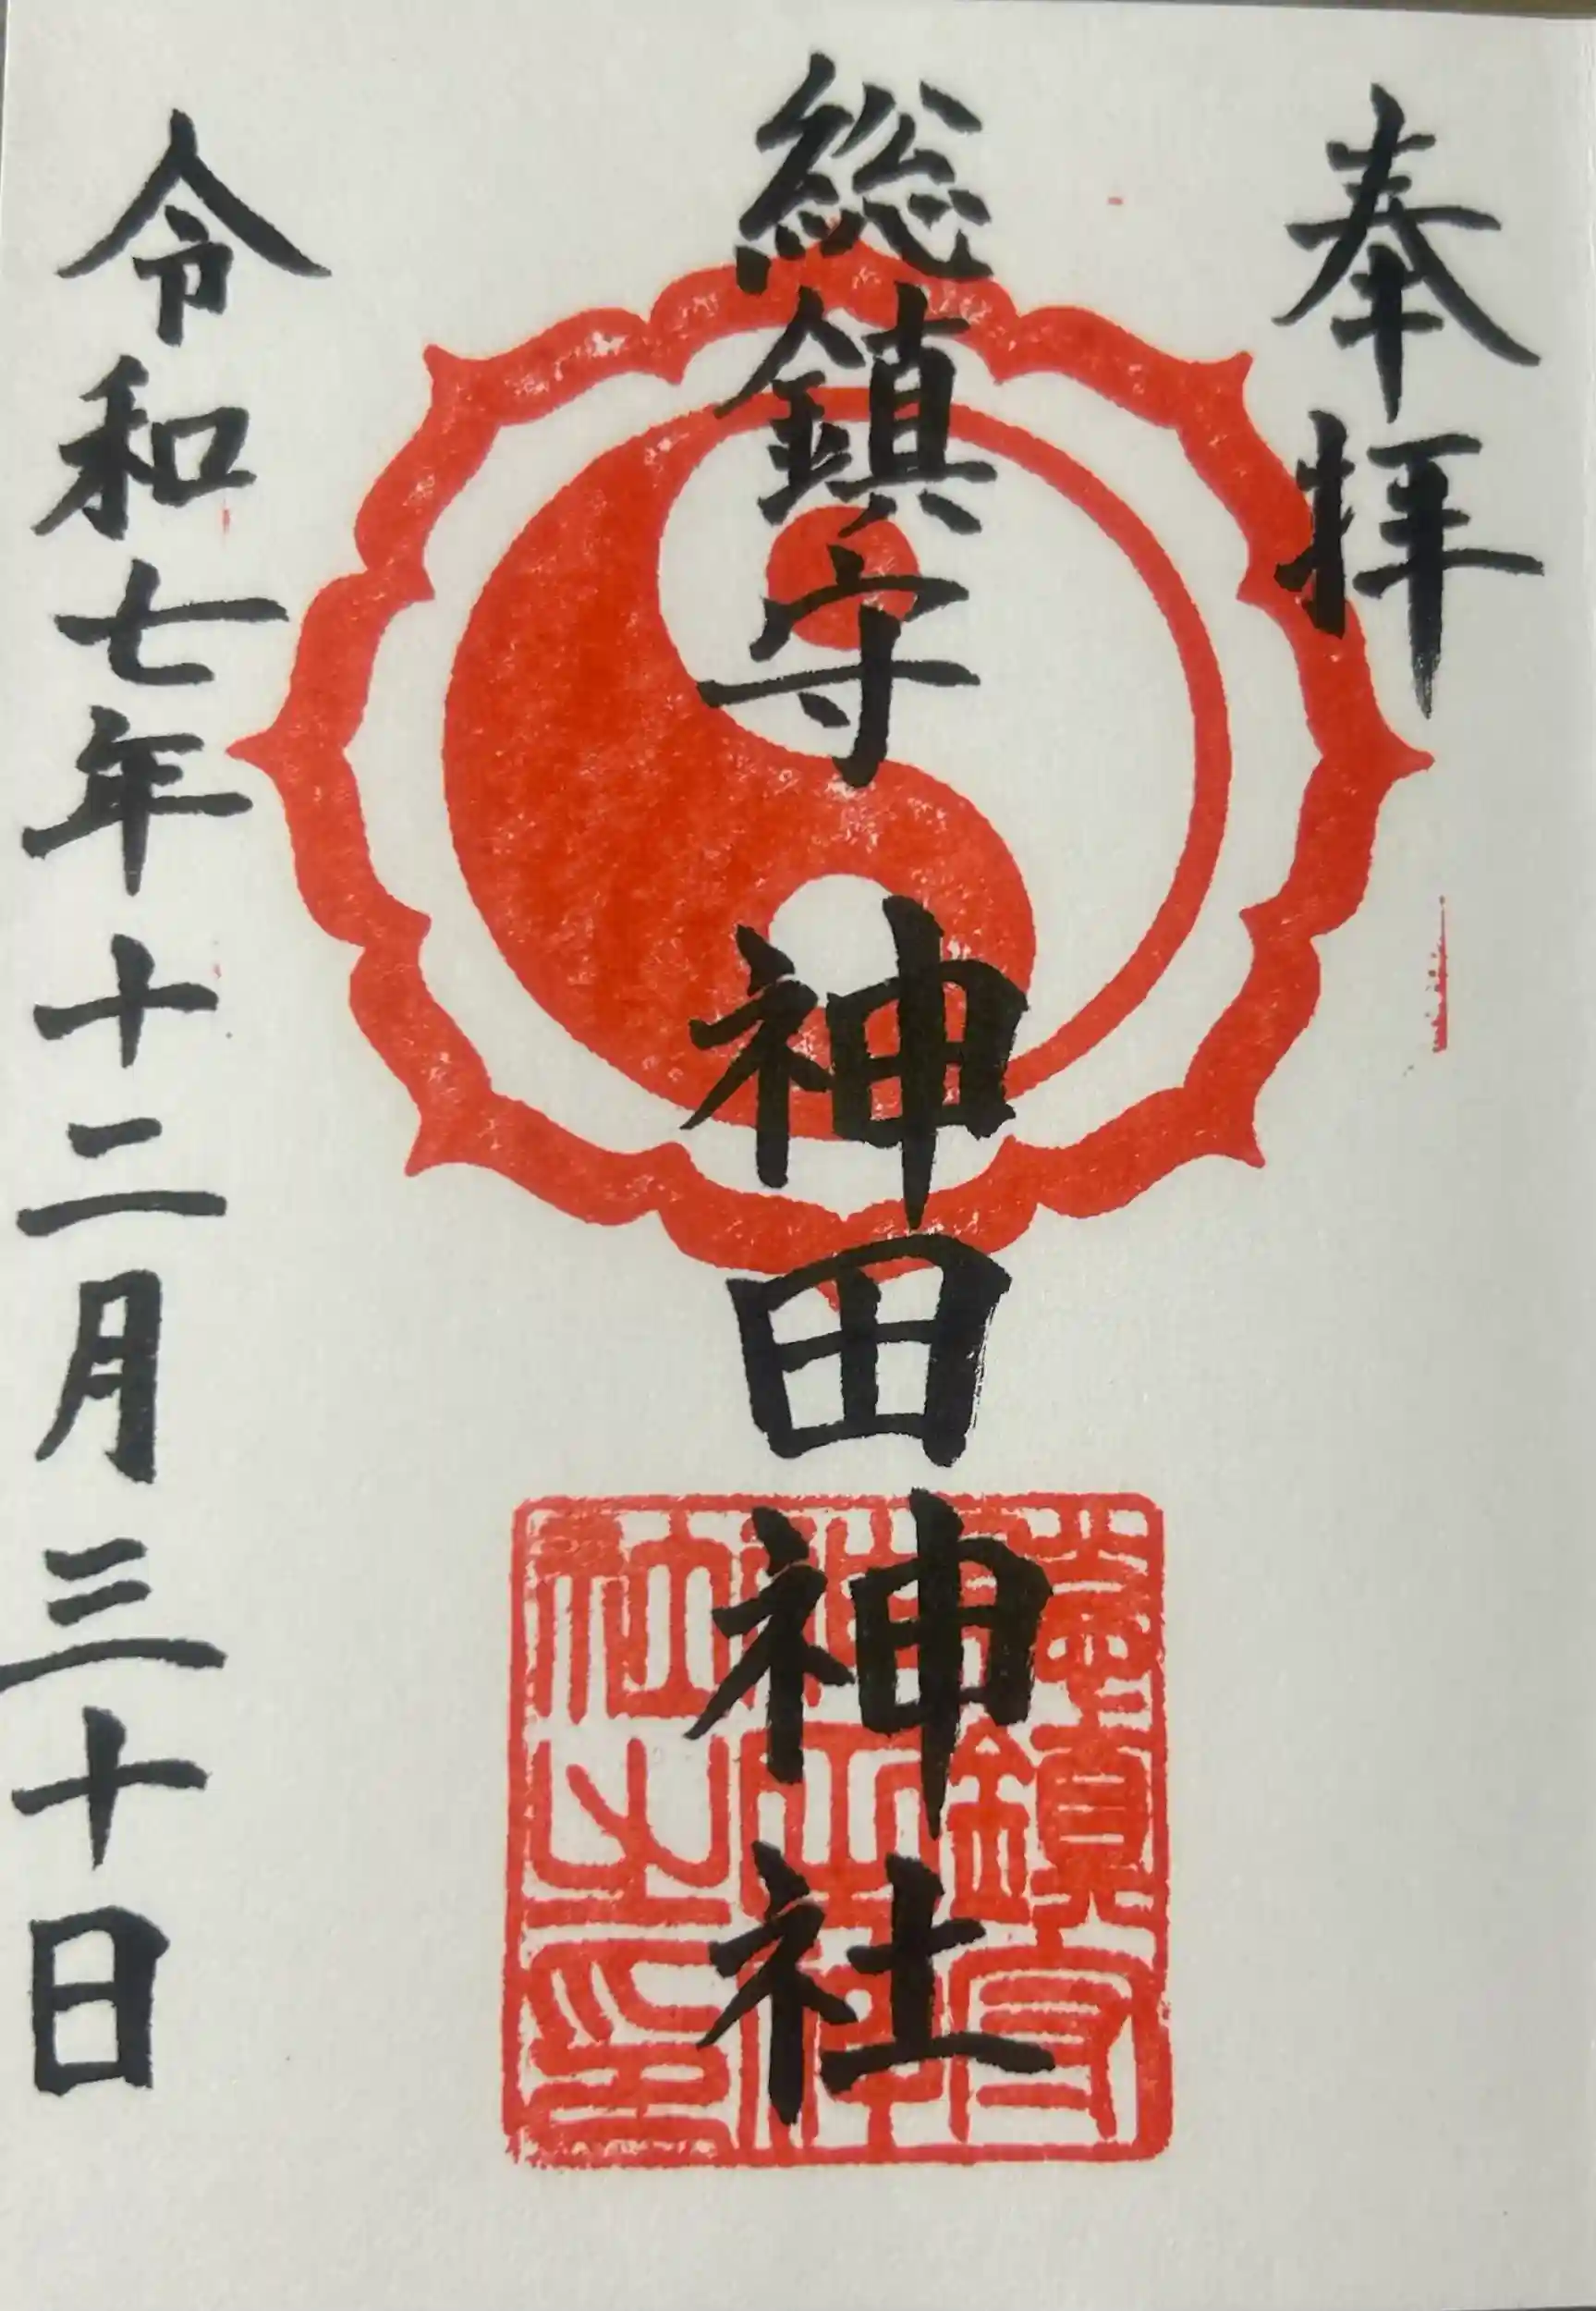 奉拝
総鎮守 神田神社
令和七年十二月三十日